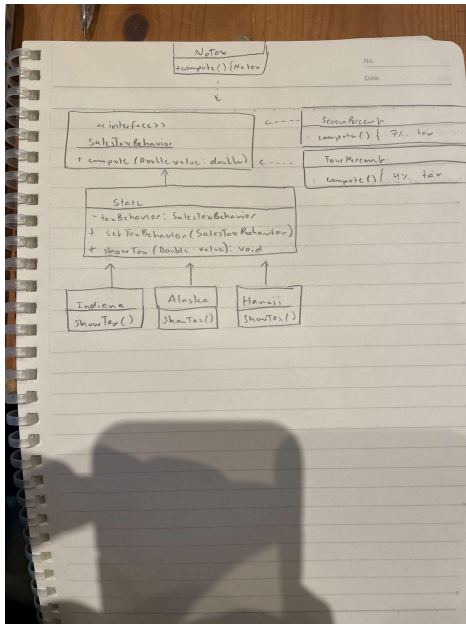 NoTax
+compute(){NoTax
No.
Date
<<interface>>
SalesTaxBehavior
+ compute (Double value: double)
SevenPercent
compute() { 7% tax
FourPercent
compute() { 4% tax
State
- taxBehavior: SalesTaxBehavior
+ setTaxBehavior(SalesTaxBehavior)
+ showTax (Double value): void
Indiana
showTax()
Alaska
showTax()
Hawaii
showTax()